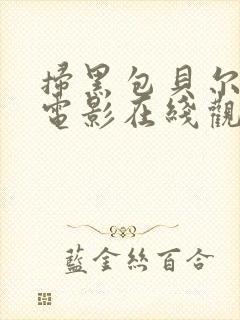 掃黑包貝尔
電影在綫觀
藍金絲百合